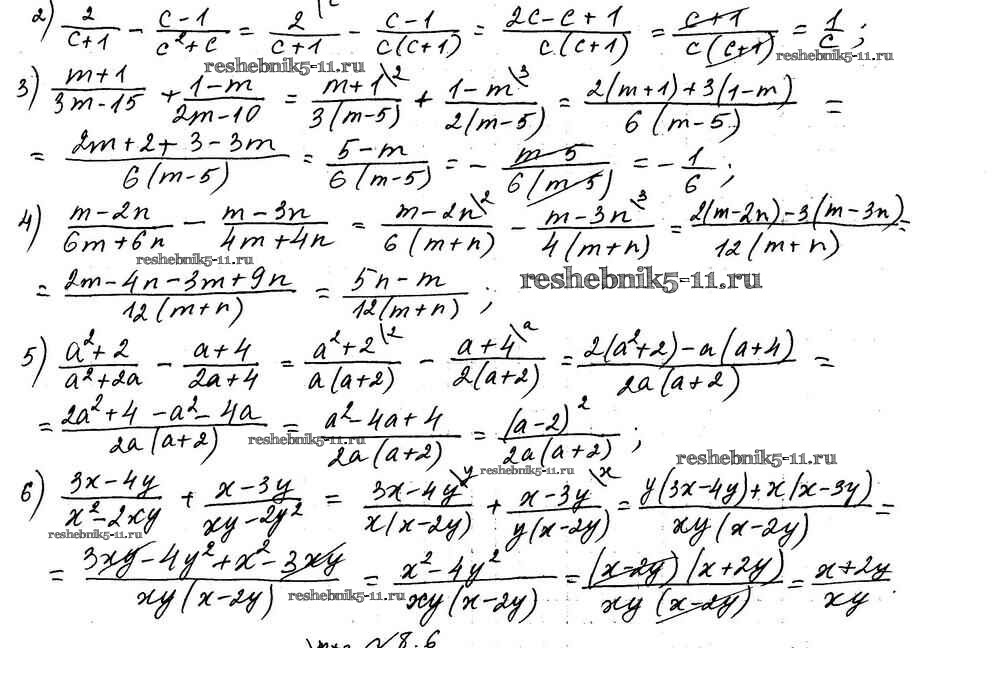 2) 2/(c+1) - (c-1)/(c²+c) = 2\c/(c+1) - (c-1)/(c(c+1)) = (2c-c+1)/(c(c+1)) = (c+1)/(c(c+1)) = 1/c;
reshebnik5-11.ru
3) (m+1)/(3m-15) + (1-m)/(2m-10) = (m+1\2)/(3(m-5)) + (1-m\3)/(2(m-5)) = (2(m+1)+3(1-m))/(6(m-5)) =
= (2m+2+3-3m)/(6(m-5)) = (5-m)/(6(m-5)) = - (m-5)/(6(m-5)) = - 1/6;
4) (m-2n)/(6m+6n) - (m-3n)/(4m+4n) = (m-2n\2)/(6(m+n)) - (m-3n\3)/(4(m+n)) = (2(m-2n)-3(m-3n))/(12(m+n)) =
reshebnik5-11.ru
= (2m-4n-3m+9n)/(12(m+n)) = (5n-m)/(12(m+n));
reshebnik5-11.ru
5) (a²+2)/(a²+2a) - (a+4)/(2a+4) = (a²+2\2)/(a(a+2)) - (a+4\a)/(2(a+2)) = (2(a²+2)-a(a+4))/(2a(a+2)) =
= (2a²+4-a²-4a)/(2a(a+2)) = (a²-4a+4)/(2a(a+2)) = (a-2)²/(2a(a+2));
reshebnik5-11.ru
reshebnik5-11.ru
reshebnik5-11.ru
6) (3x-4y)/(x²-2xy) + (x-3y)/(xy-2y²) = (3x-4y\y)/(x(x-2y)) + (x-3y\x)/(y(x-2y)) = (y(3x-4y)+x(x-3y))/(xy(x-2y)) =
reshebnik5-11.ru
= (3xy-4y²+x²-3xy)/(xy(x-2y)) = (x²-4y²)/(xy(x-2y)) = ((x-2y)(x+2y))/(xy(x-2y)) = (x+2y)/(xy)
reshebnik5-11.ru
8.6